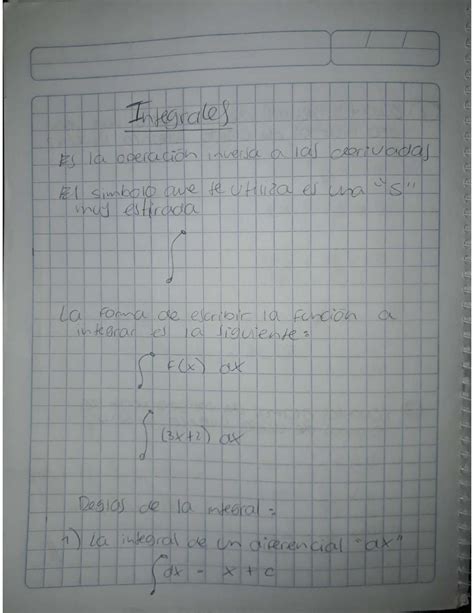 Integrales
Es la operación inversa a las derivadas
El simbolo que se utiliza es una "S"
muy estirada
∫
La forma de escribir la función a
integrar es la siguiente:
∫ F(x) dx
∫ (3x+2) dx
Reglas de la integral:
1) La integral de un diferencial "dx"
∫dx = x + c